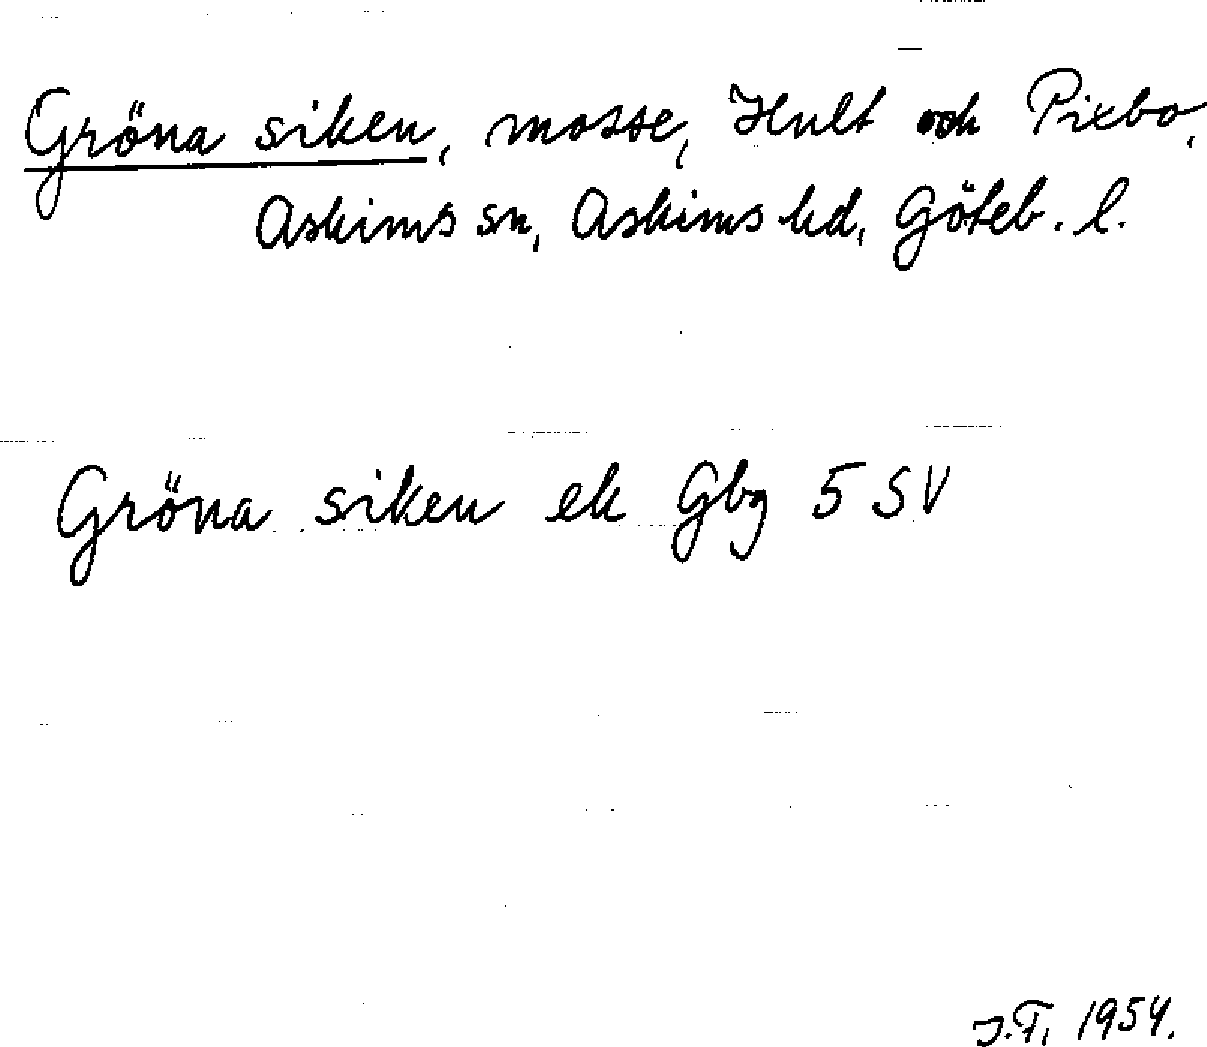 Gröna siken, mosse, Hult och Pixbo,
Askims sn, Askims hd, Göteb. l.
Gröna siken ek Gbg 5 SV
J.T. 1954.